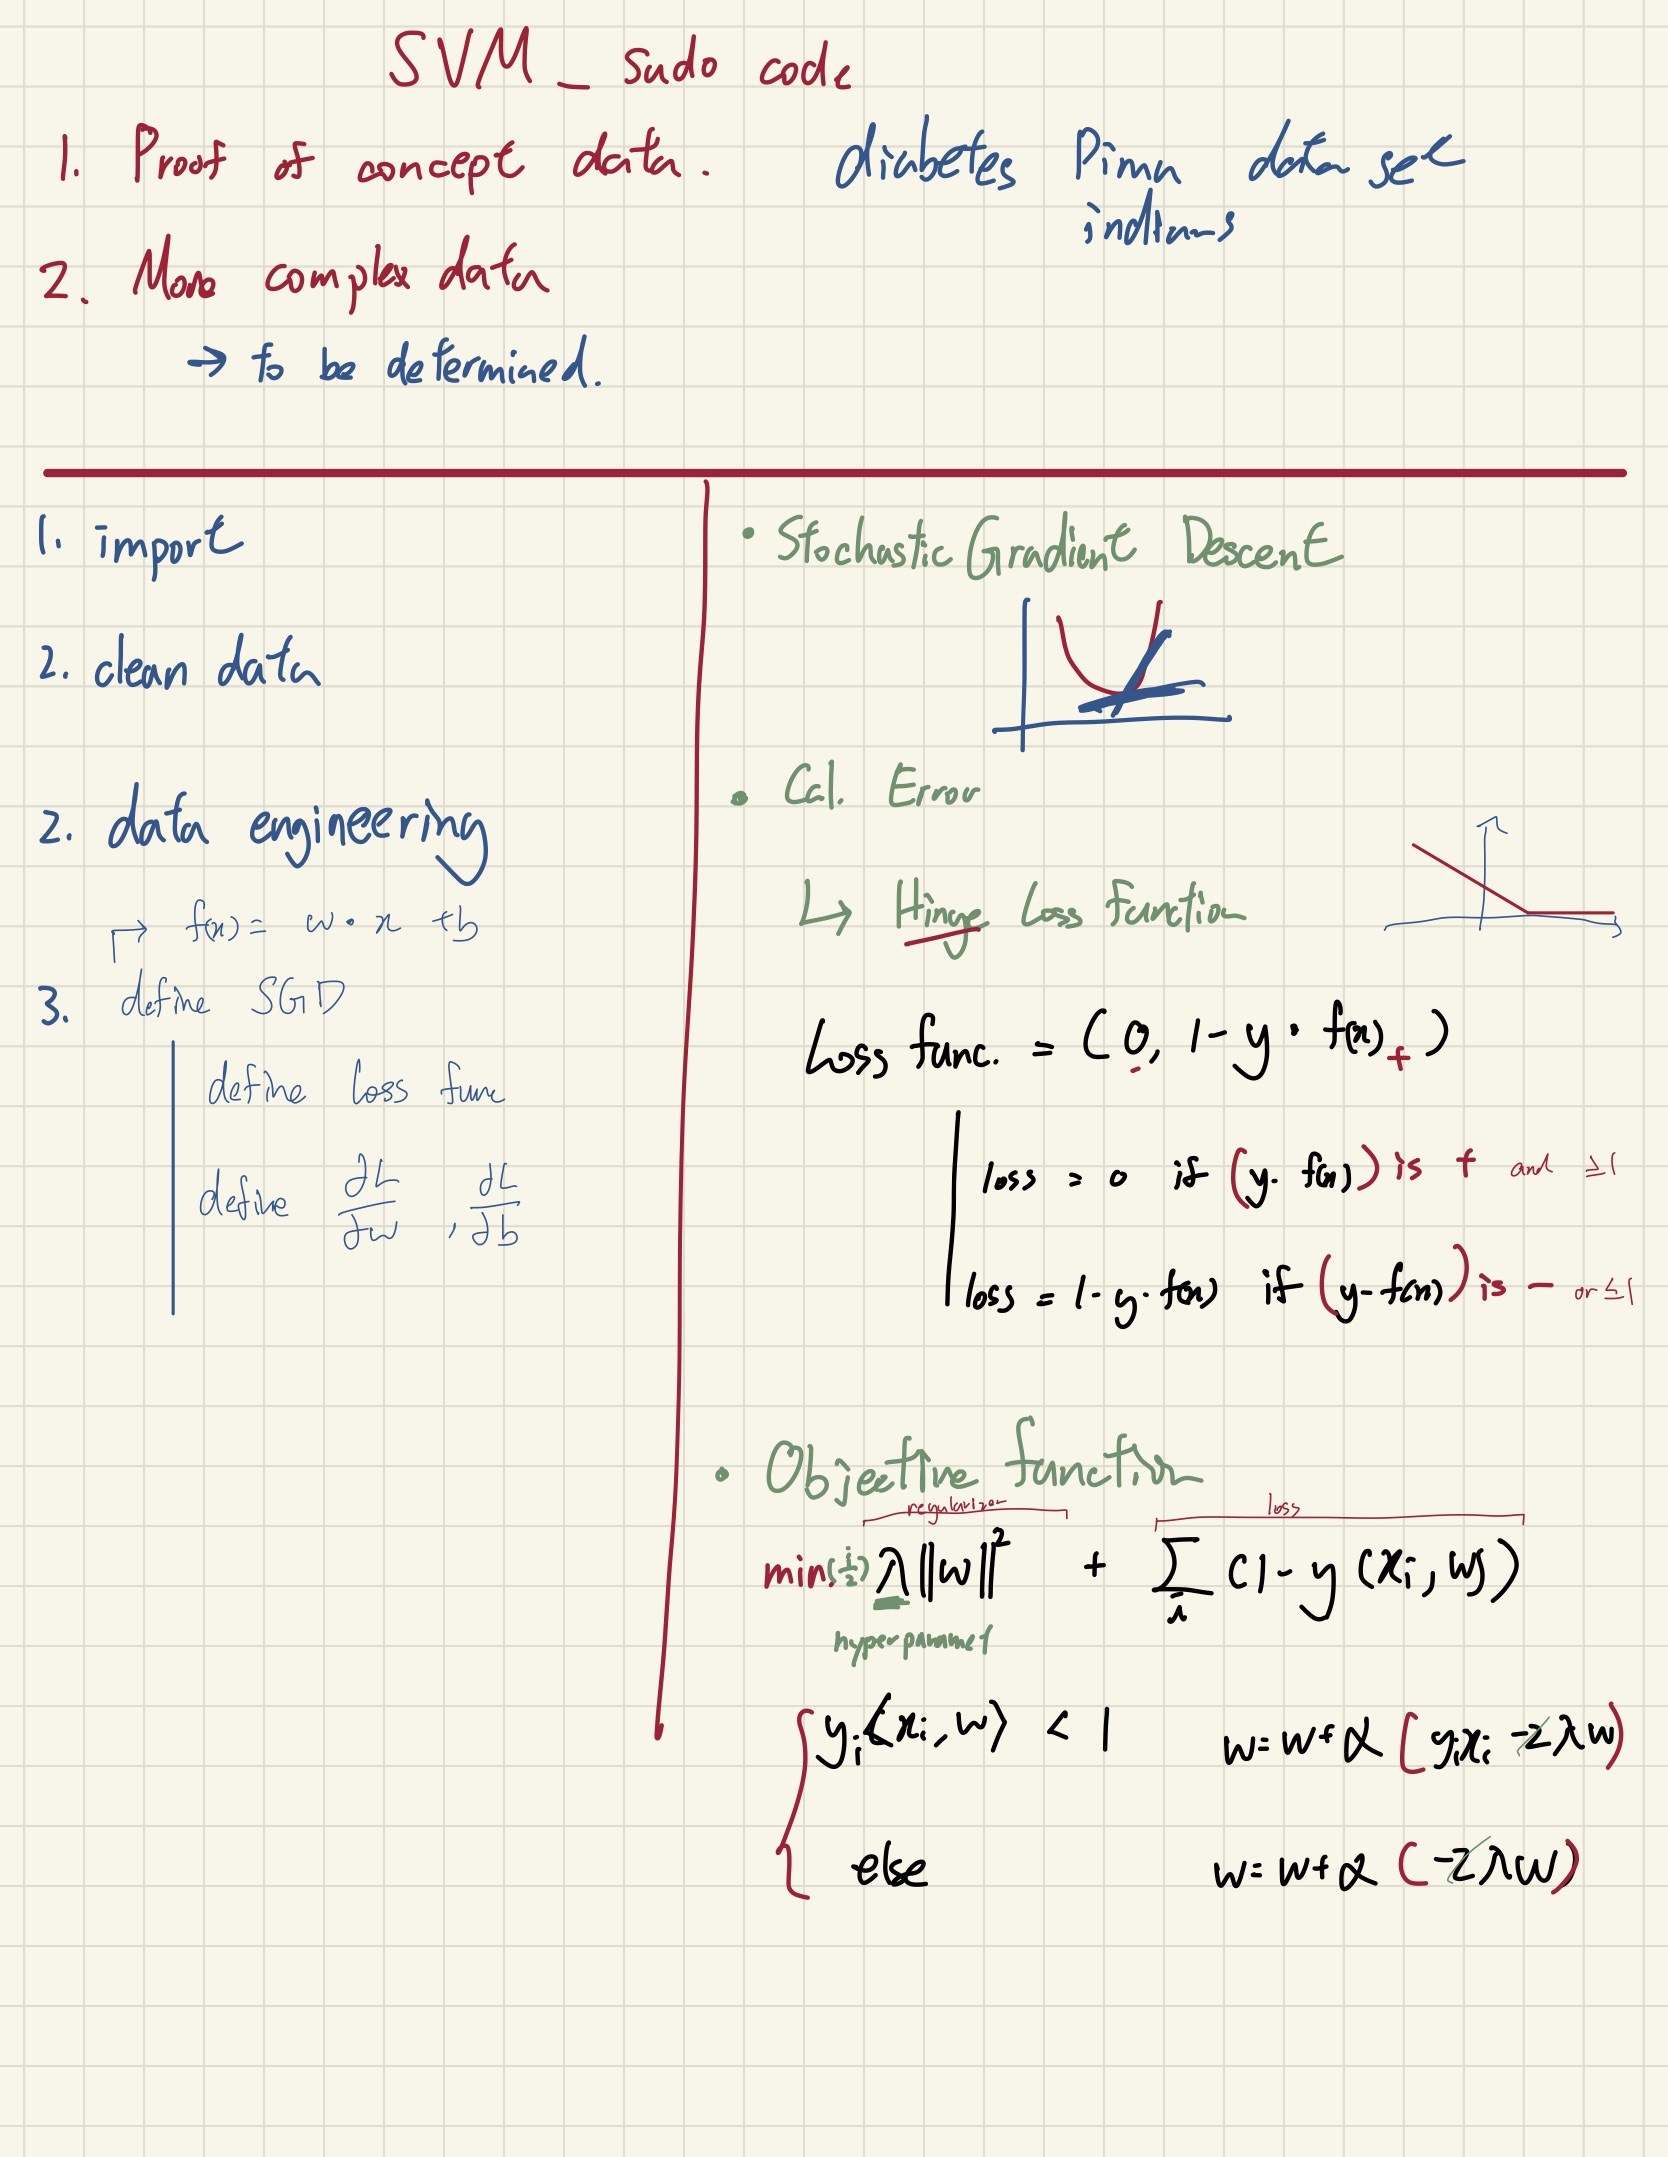 SVM _ sudo code
1. Proof of concept data.
diabetes Pima data set
indians
2. More complex data
→ to be determined.
1. import
2. clean data
2. data engineering
f(x) = w · x + b
3. define SGD
define Loss func
define ∂L/∂w , ∂L/∂b
• Stochastic Gradient Descent
• Cal. Error
↳ Hinge Loss Function
Loss func. = (0, 1 - y · f(x)+ )
loss = 0 if (y · f(x)) is + and ≥1
loss = 1 - y · f(x) if (y - f(x)) is - or ≤1
• Objective function
regularizer loss
min. (1/2) λ ||w||² + Σi (1 - y (xi, w))
hyper paramet
yi⟨xi, w⟩ < 1 w = w + α (yixi - 2λw)
else w = w + α (-2λw)